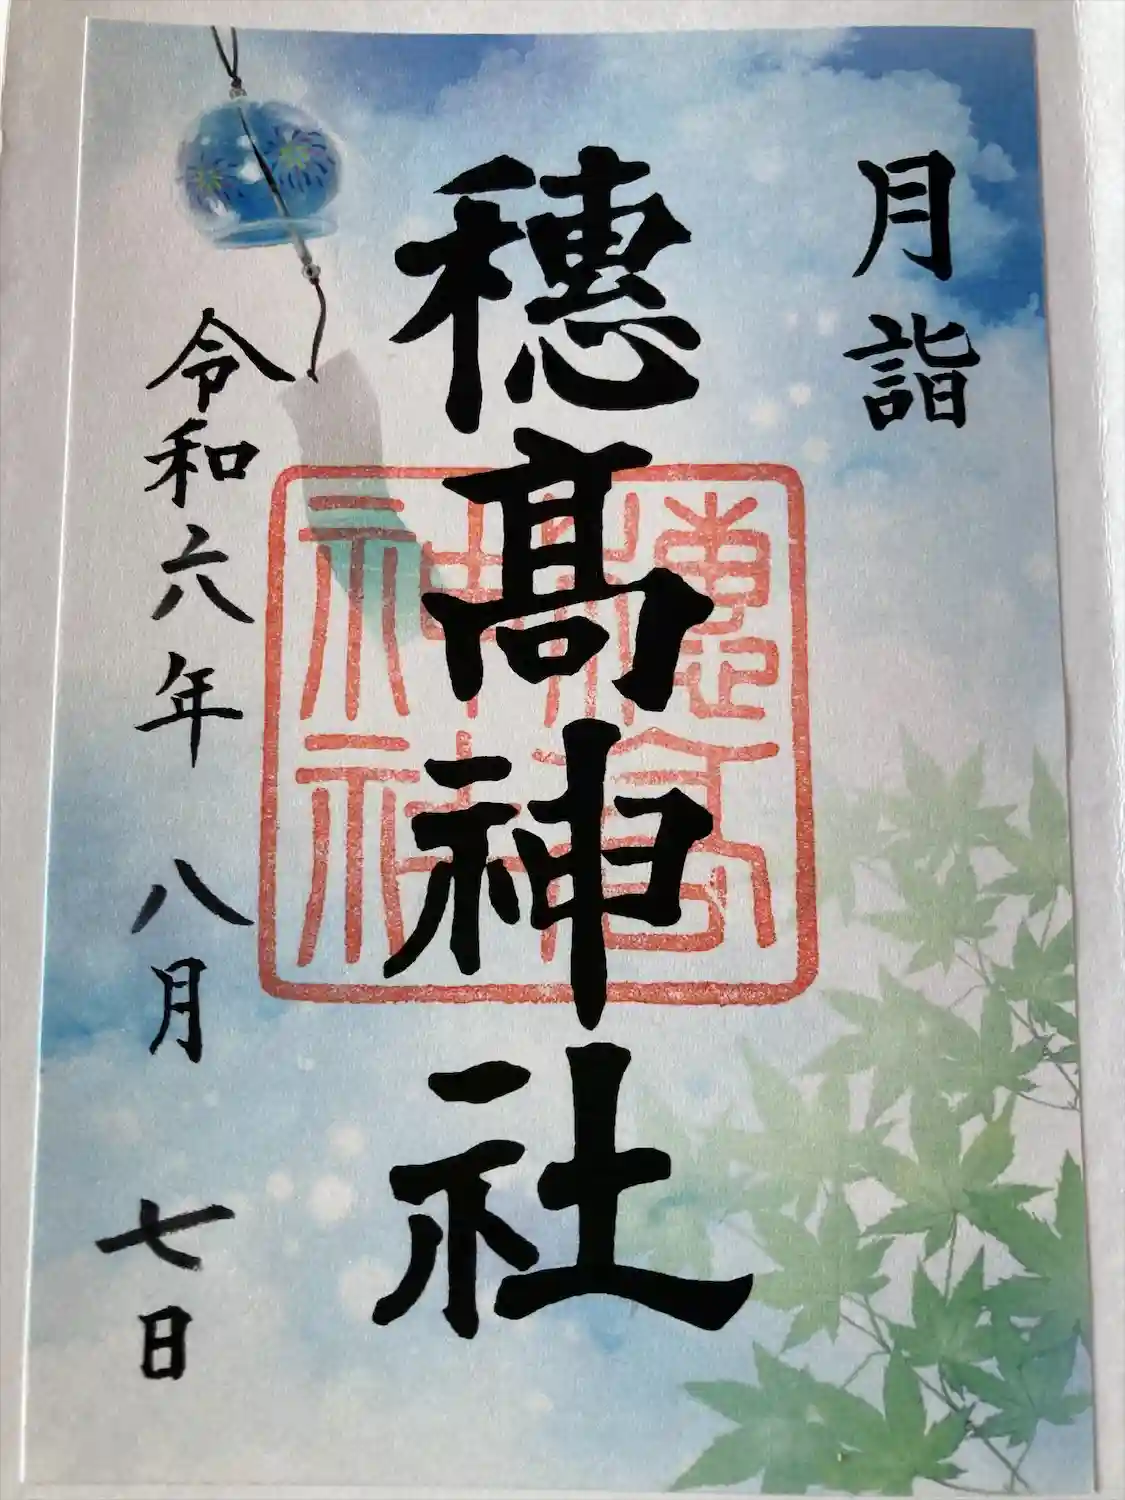 月詣
穂髙神社
穂髙
神社
令和六年 八月 七日